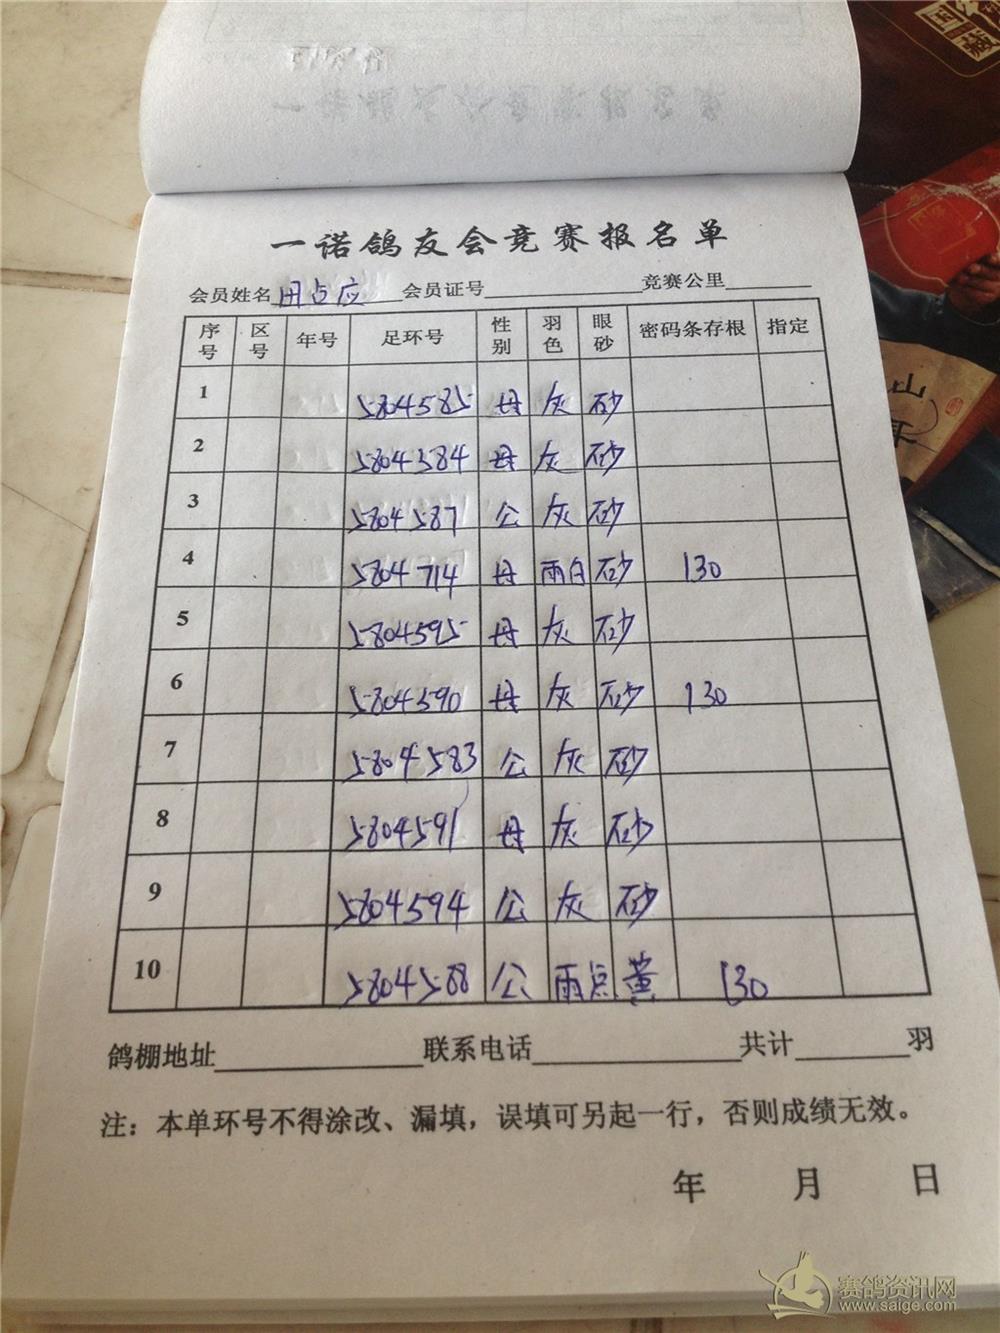 一诺鸽友会竞赛报名单
会员姓名 田占应 会员证号 竞赛公里
序号 区号 年号 足环号 性别 羽色 眼砂 密码条存根 指定
1 5804585 母 灰 砂
2 5804584 母 灰 砂
3 5804587 公 灰 砂
4 5804714 母 雨白 砂 130
5 5804595 母 灰 砂
6 5804590 母 灰 砂 130
7 5804583 公 灰 砂
8 5804591 母 灰 砂
9 5804594 公 灰 砂
10 5804588 公 雨点 黄 130
鸽棚地址 联系电话 共计 羽
注：本单环号不得涂改、漏填，误填可另起一行，否则成绩无效。
年 月 日
赛鸽资讯网
www.saige.com